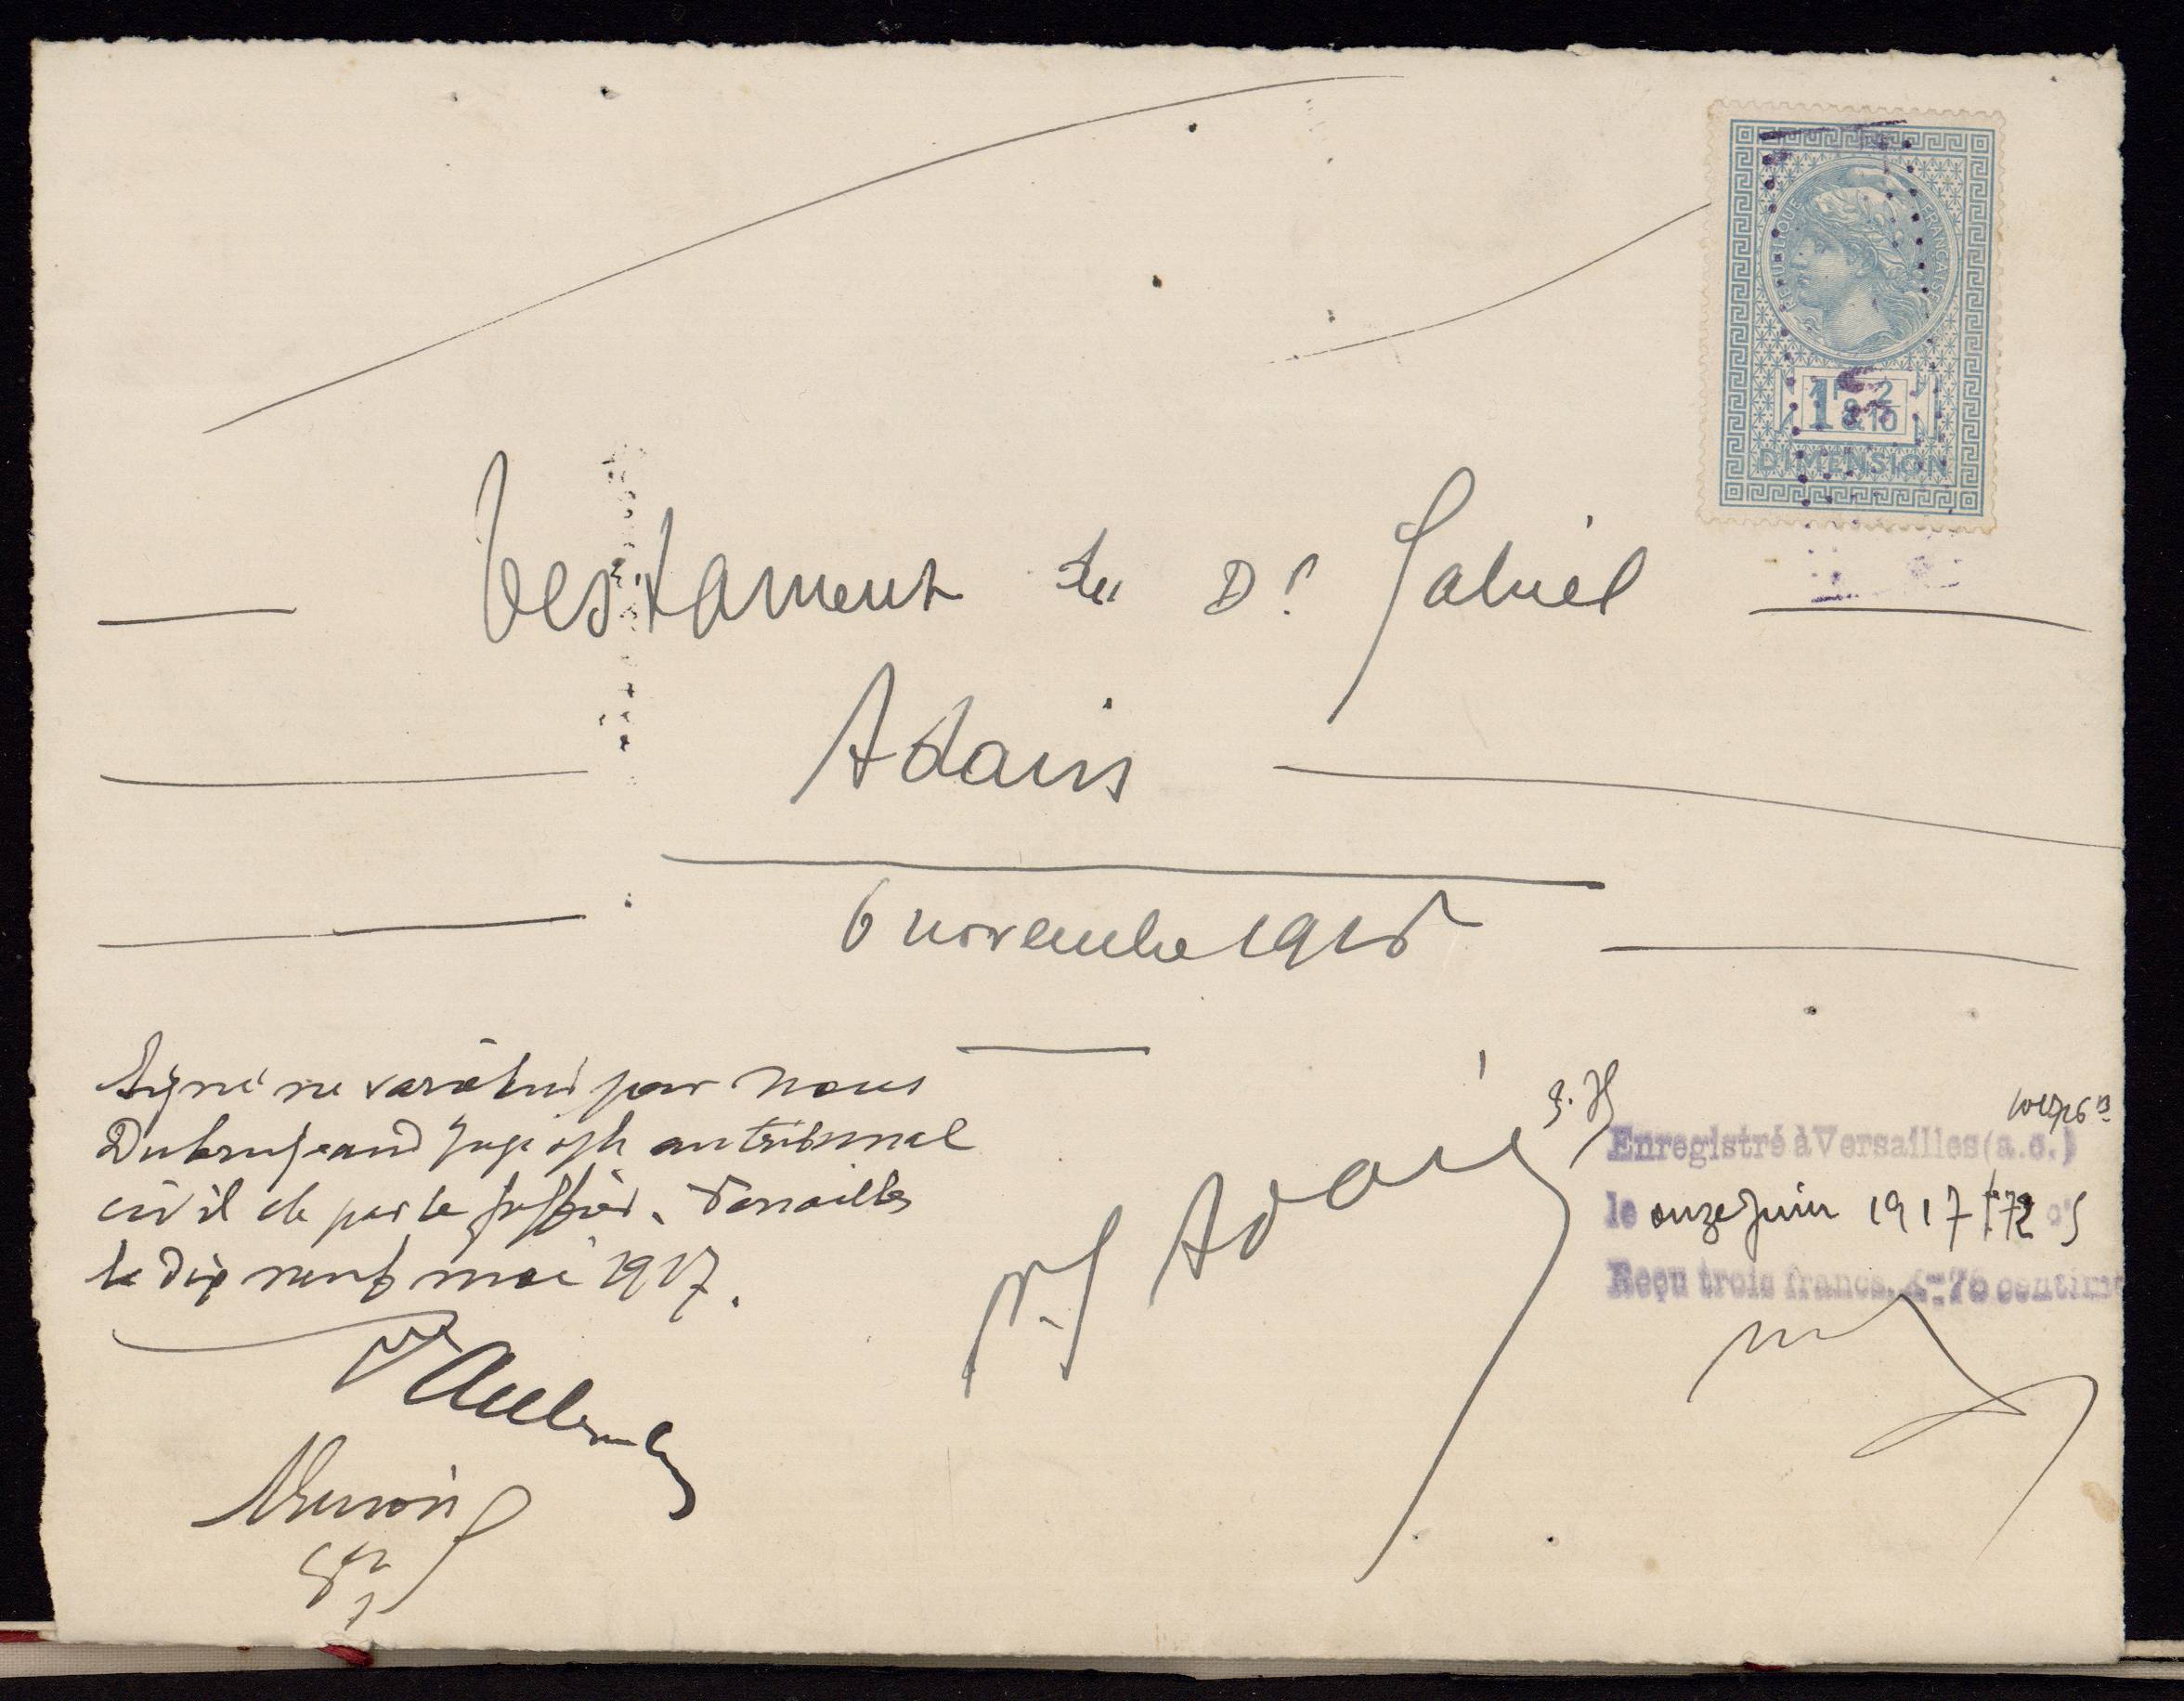 RÉPUBLIQUE FRANÇAISE
1F & 2/10
DIMENSION
testament du Dr Gabriel
Adam
6 novembre 1915
Signé ne varietur par nous
Dubrujeaud Juge au tribunal
civil de par le greffier. Versailles
le dix neuf mai 1917.
Adam
Enregistré à Versailles (a.c.)
le onze Juin 1917
Reçu trois francs, 75 centimes